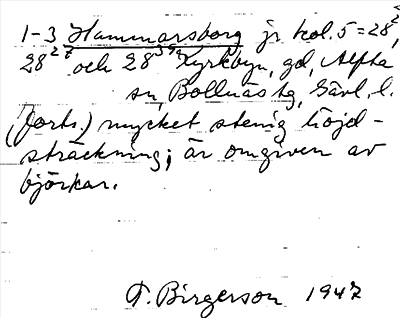 1-3 Hammarsborg jr kol. 5 = 28²,
28²⁷ och 28³⁹ᵃ Kyrkbyn, gd, Alfta
sn, Bollnäs tg, Gävl. l.
(forts.) mycket stenig höjd-
sträckning; är omgiven av
björkar.
F. Birgerson 1947